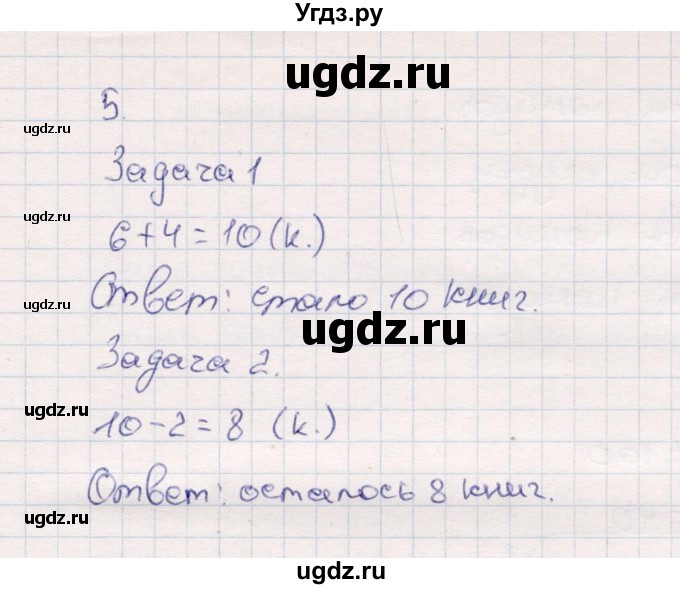 Угдз.ру
ugdz.ru
5.
ugdz.ru
Задача 1
ugdz.ru
6+4=10 (к.)
ugdz.ru
Ответ: стало 10 книг.
ugdz.ru
ugdz.ru
Задача 2.
ugdz.ru
10-2=8 (к.)
Ответ: осталось 8 книг.
ugdz.ru
ugdz.ru